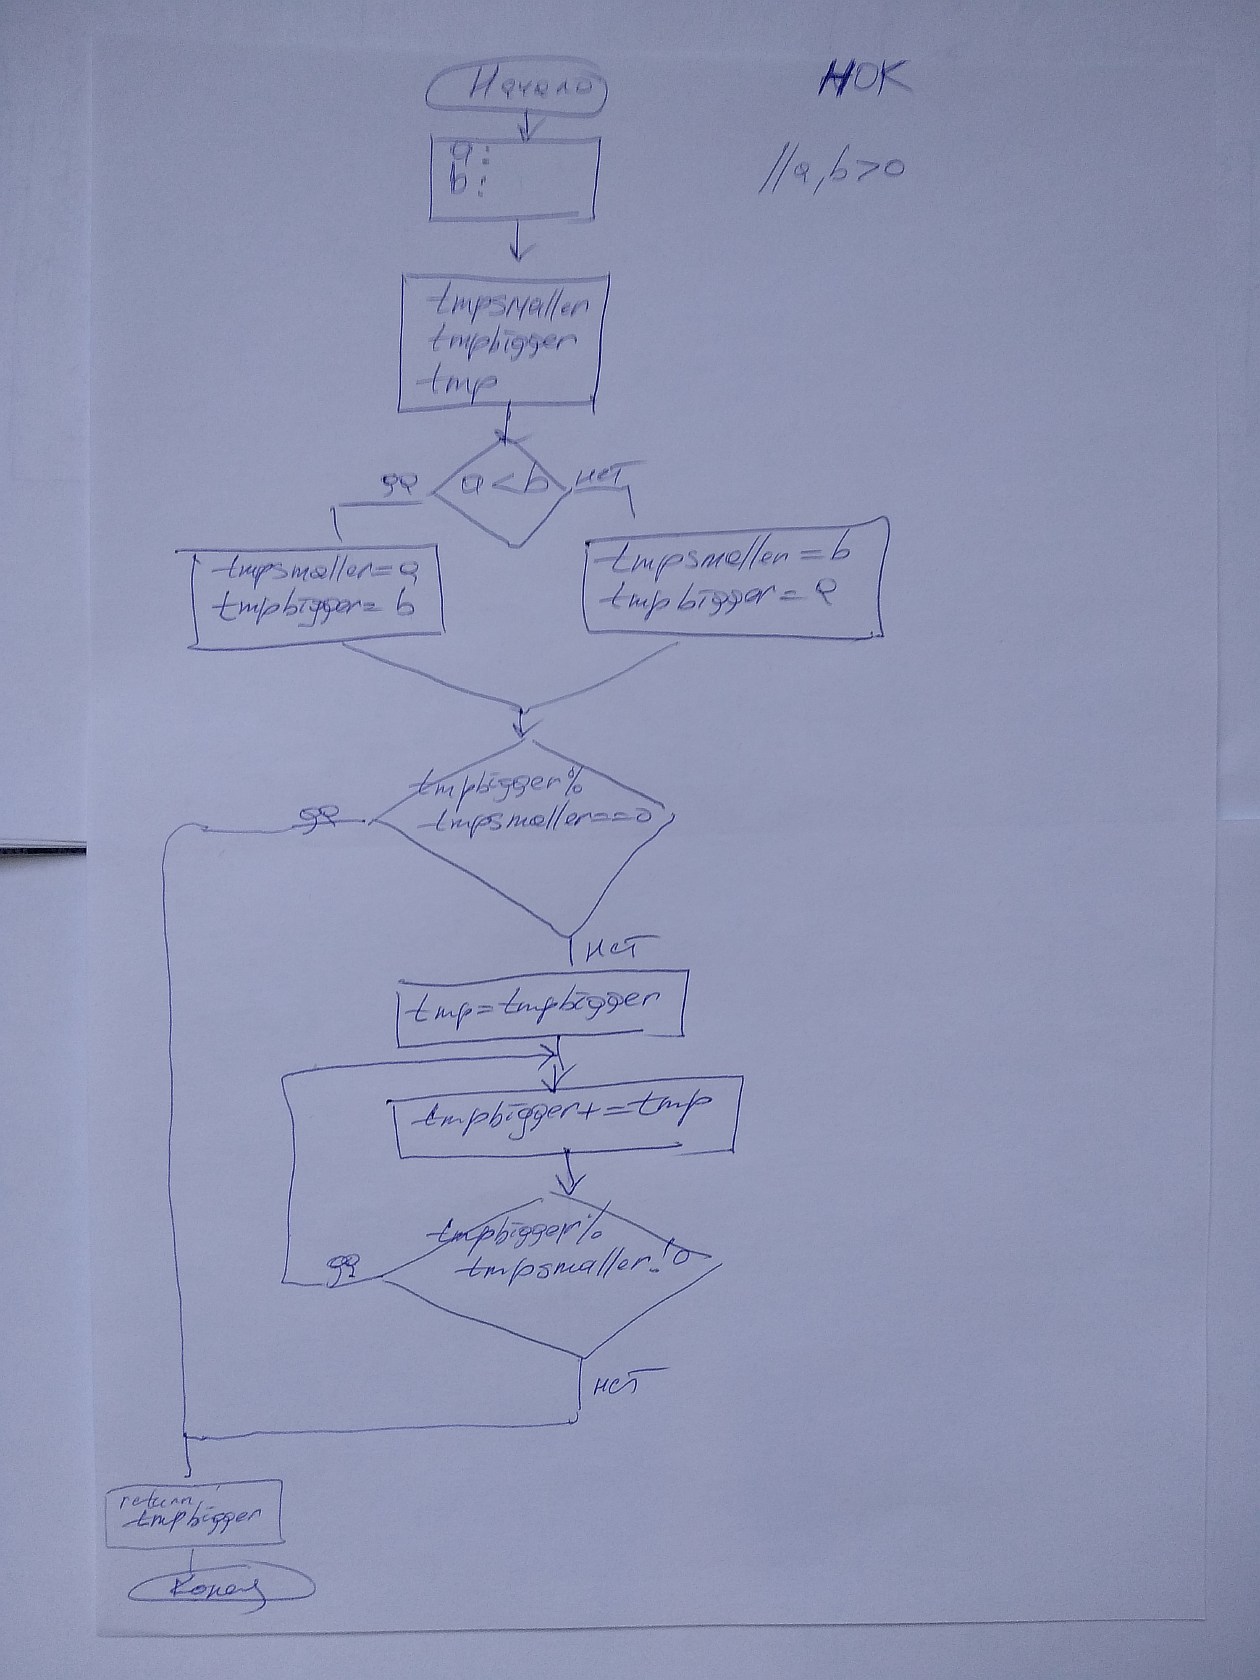 Начало
НОК
a:
b:
//a,b>0
tmpsmaller
tmpbigger
tmp
да
a<b
нет
tmpsmaller=a
tmpbigger=b
tmpsmaller=b
tmpbigger=a
tmpbigger%
tmpsmaller==0
да
нет
tmp=tmpbigger
tmpbigger+=tmp
tmpbigger%
tmpsmaller!0
да
нет
return
tmpbigger
Конец